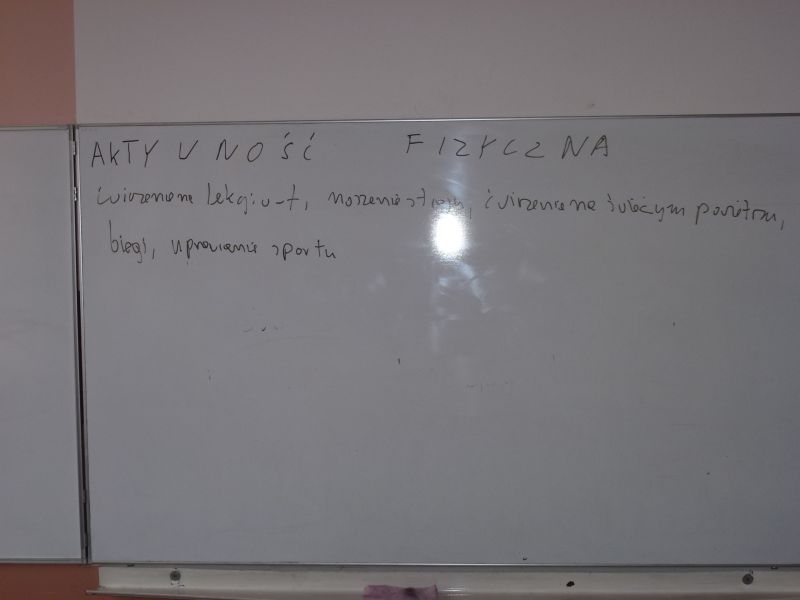 AKTYWNOŚĆ FIZYCZNA
ćwiczenie na lekcji w-f, noszenie stroju, ćwiczenie na świeżym powietrzu,
biegi, uprawianie sportu